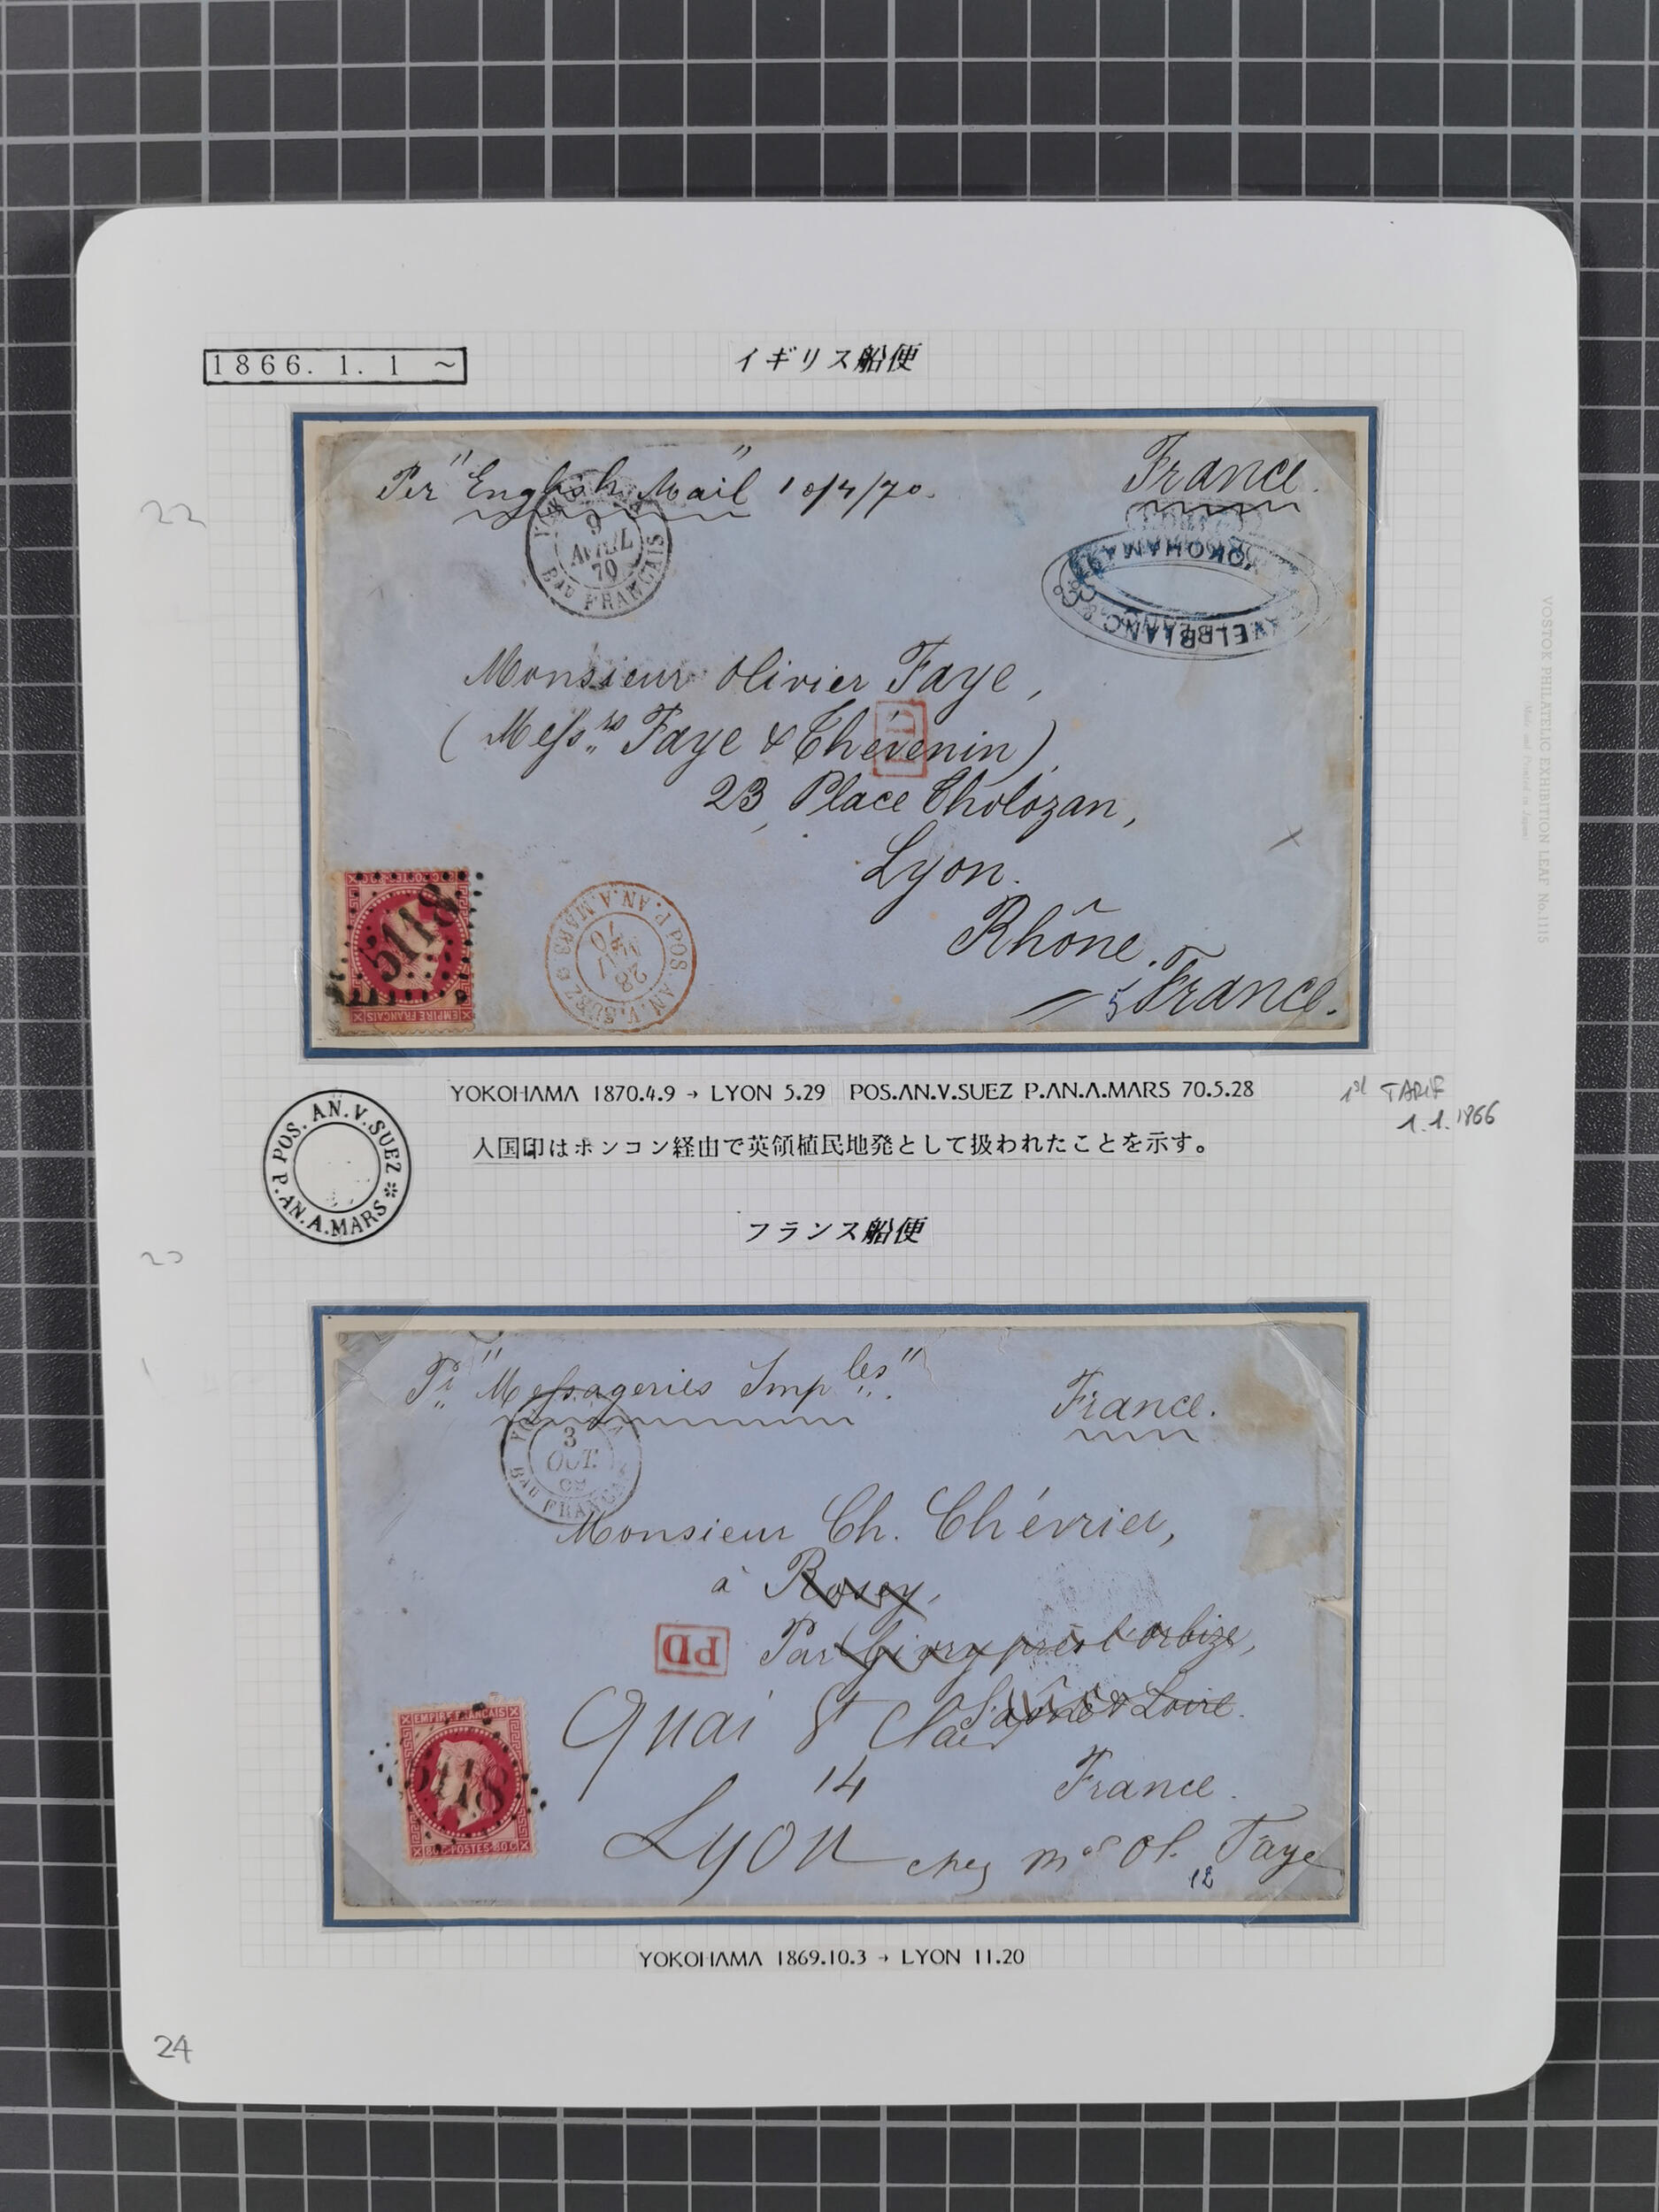 1866. 1. 1 ~
イギリス船便
22
Per "English Mail" 10/4/70.
France.
9
AVRIL
70
Bau FRANCAIS
YOKOHAMA
Monsieur Olivier Faye,
(Mess.rs Faye & Thévenin),
PD
23, Place Tholozan,
Lyon.
Rhône.
5 France.
5118
EMPIRE FRANCAIS
POS. AN.V.SUEZ
P.AN.A.MARS
28
MAI
70
YOKOHAMA 1870.4.9 → LYON 5.29 POS.AN.V.SUEZ P.AN.A.MARS 70.5.28
1st TARIF
1.1.1866
入国印はホンコン経由で英領植民地発として扱われたことを示す。
POS. AN.V.SUEZ
P.AN.A.MARS
フランス船便
Pr "Messageries Imples".
France.
3
OCT.
69
Bau FRANCAIS
Monsieur Ch. Chévrier,
à Rosey,
PD
Par Givry près l'orbize,
Saône & Loire.
Quai St Clair
14
France.
Lyon chez Mr Ol. Faye
12
EMPIRE FRANCAIS
5118
80C POSTES 80C
YOKOHAMA 1869.10.3 → LYON 11.20
24
VOSTOK PHILATELIC EXHIBITION LEAF No.1115
Made and Printed in Japan